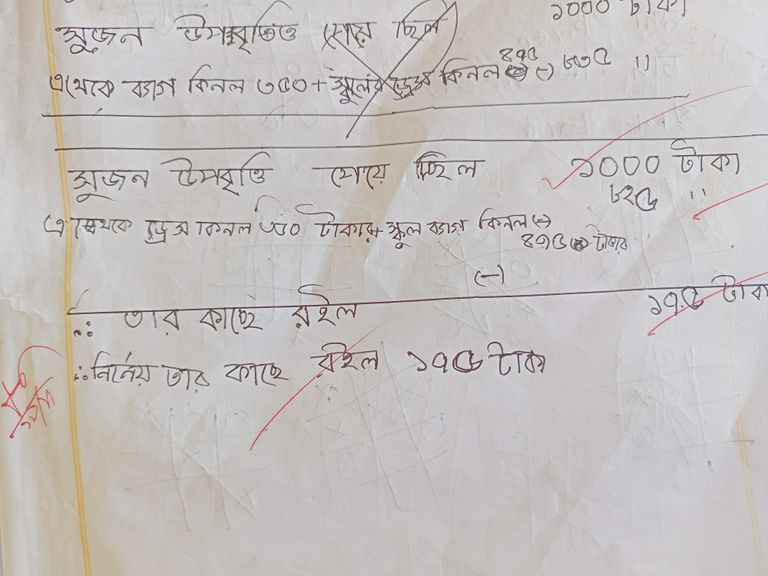 সুজন উপবৃত্তিও পেয়ে ছিল ১০০০ টাকা
এথেকে ব্যাগ কিনল ৩৫০ + স্কুলের ড্রেস কিনল ৪৭৫ (-) ৮৩৫ "
সুজন উপবৃত্তি পেয়ে ছিল ১০০০ টাকা
এ থেকে ড্রেস কিনল ৩৫০ টাকার + স্কুল ব্যাগ কিনল ৪৭৫ টাকার ৮২৫ "
(-)
∴ তার কাছে রইল ১৭৫ টাকা
∴ নির্নেয় তার কাছে রইল ১৭৫ টাকা